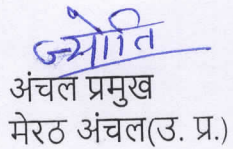 ज्योति
अंचल प्रमुख
मेरठ अंचल(उ. प्र.)